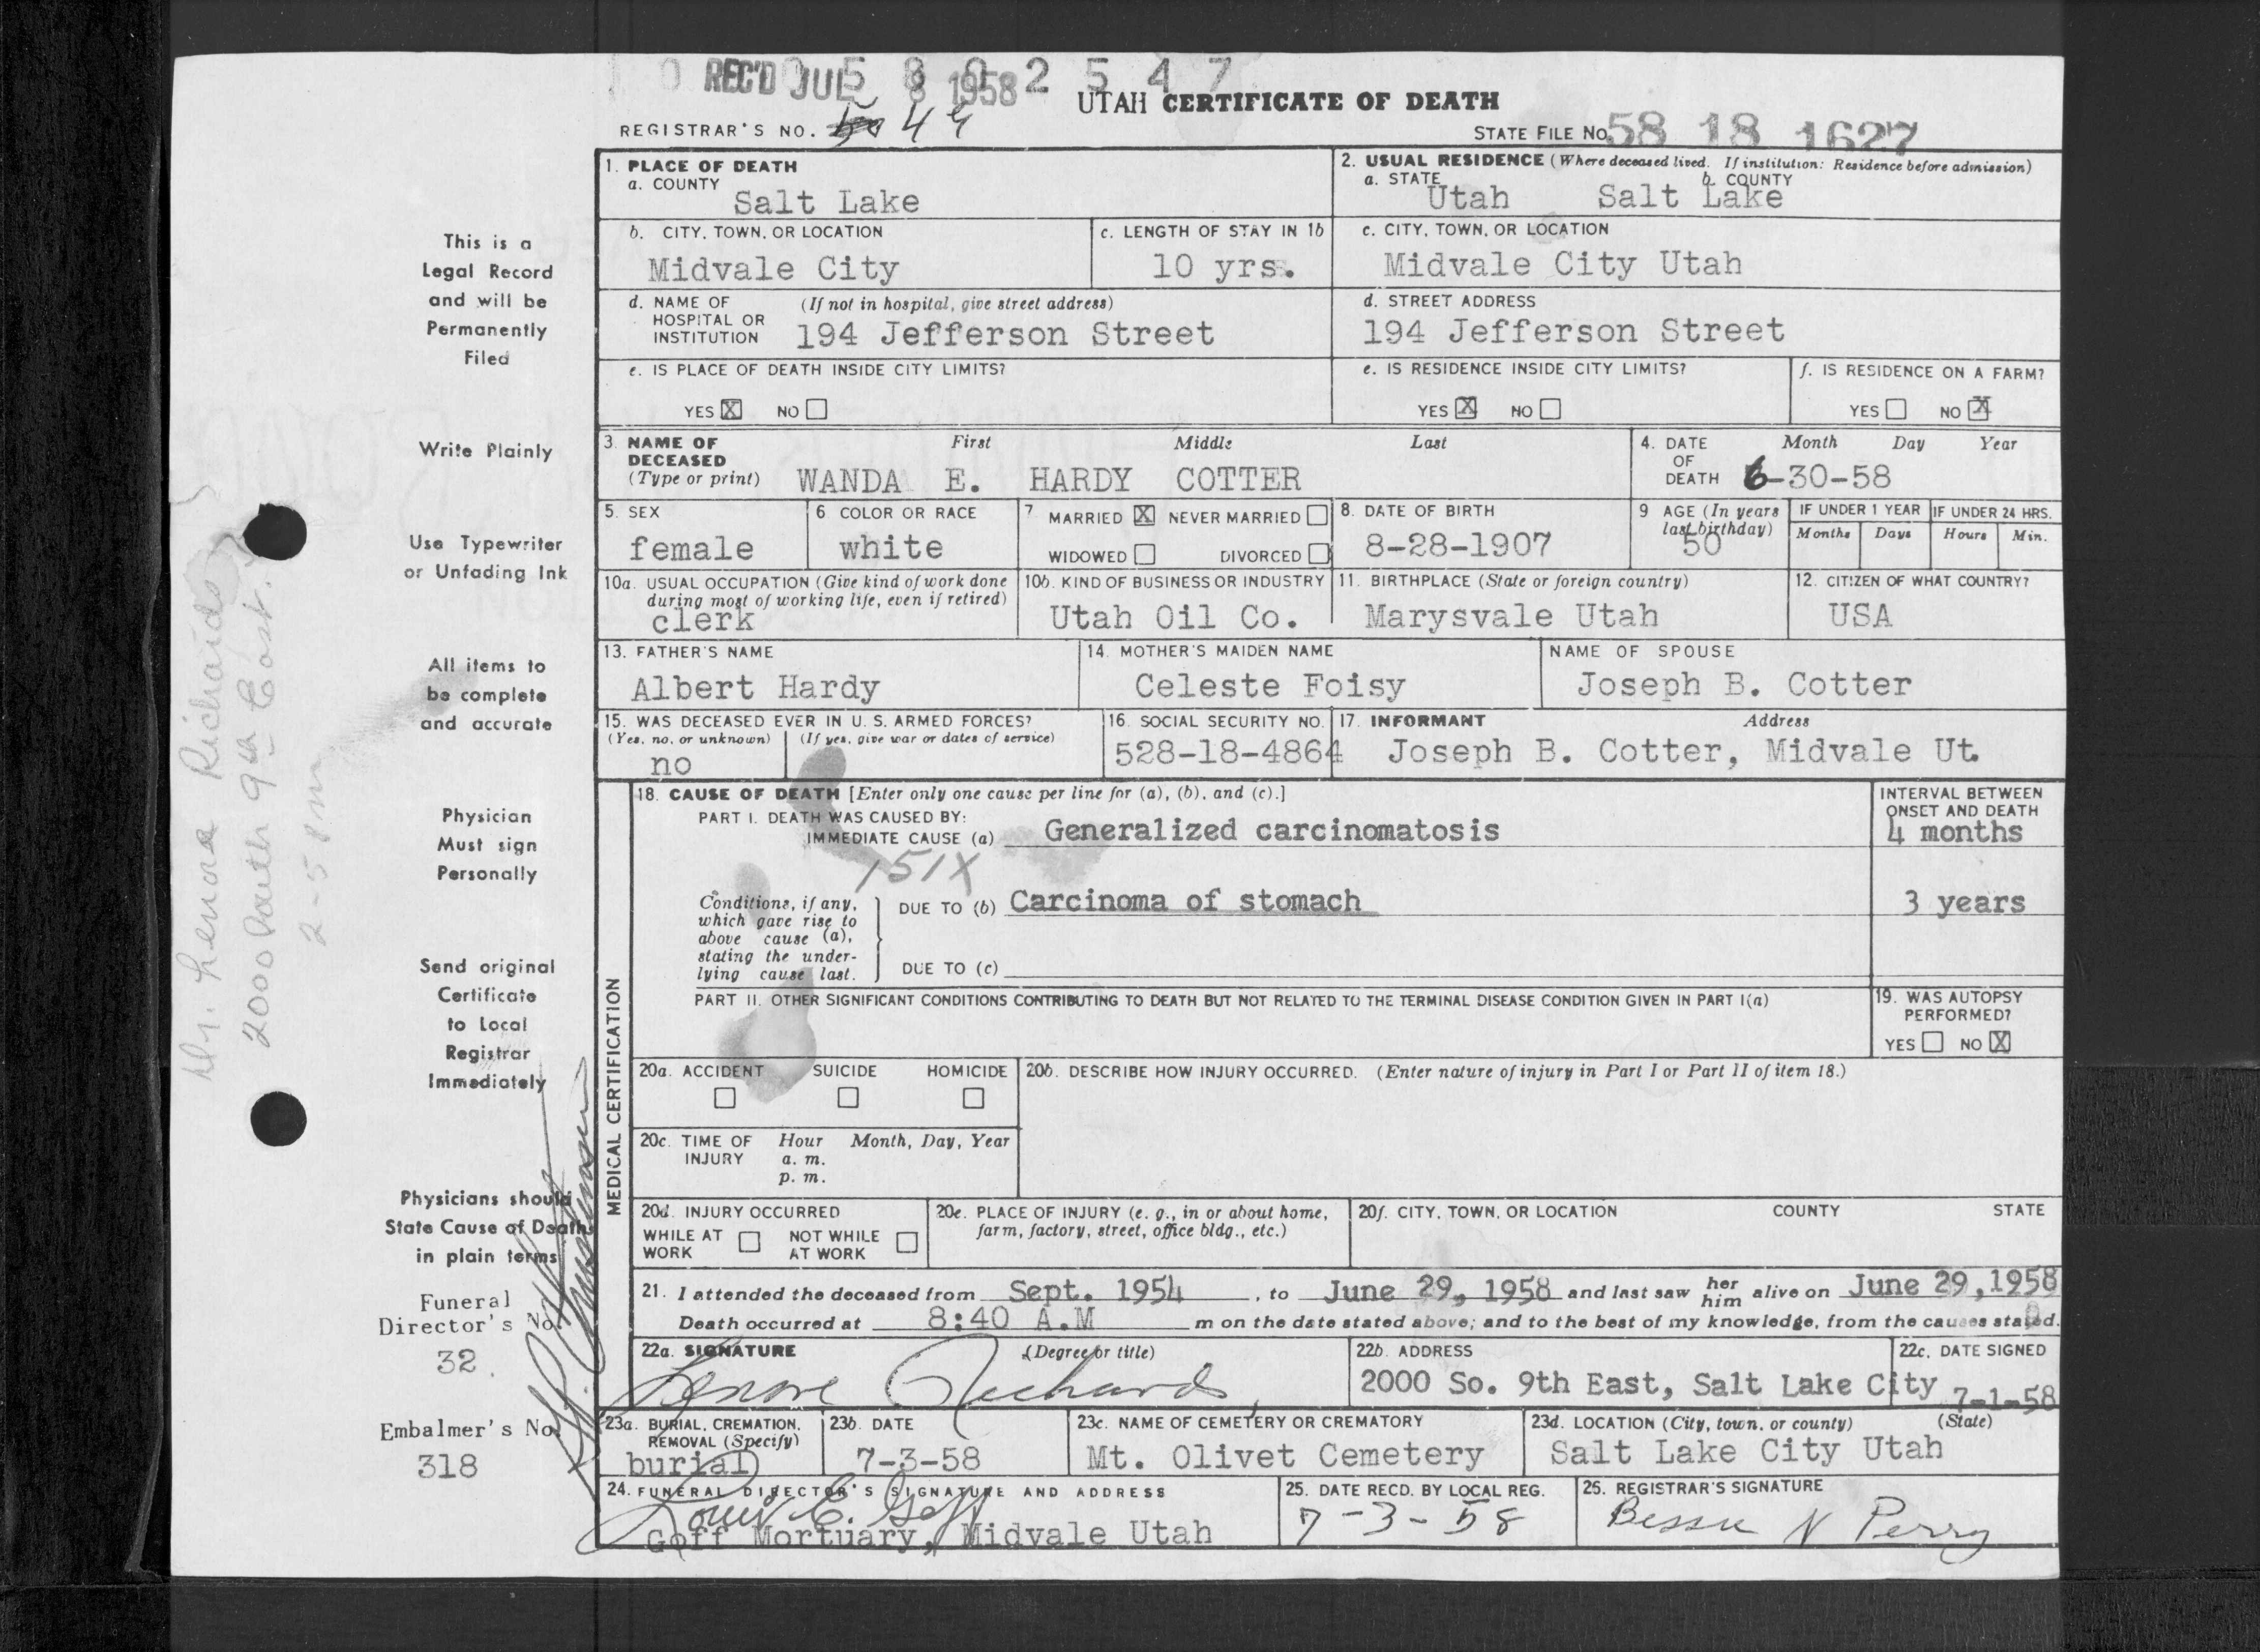 REC'D JUL 8 1958
5 8 0 2 5 4 7
UTAH CERTIFICATE OF DEATH
REGISTRAR'S NO. 44
STATE FILE NO. 58 18 1627
1. PLACE OF DEATH
a. COUNTY
Salt Lake
2. USUAL RESIDENCE (Where deceased lived. If institution: Residence before admission)
a. STATE b. COUNTY
Utah Salt Lake
b. CITY, TOWN, OR LOCATION
Midvale City
c. LENGTH OF STAY IN 1b
10 yrs.
c. CITY, TOWN, OR LOCATION
Midvale City Utah
d. NAME OF HOSPITAL OR INSTITUTION (If not in hospital, give street address)
194 Jefferson Street
d. STREET ADDRESS
194 Jefferson Street
e. IS PLACE OF DEATH INSIDE CITY LIMITS?
YES X NO
e. IS RESIDENCE INSIDE CITY LIMITS?
YES X NO
f. IS RESIDENCE ON A FARM?
YES NO X
3. NAME OF DECEASED (Type or print) First Middle Last
WANDA E. HARDY COTTER
4. DATE OF DEATH Month Day Year
6-30-58
5. SEX
female
6 COLOR OR RACE
white
7 MARRIED X NEVER MARRIED
WIDOWED DIVORCED
8. DATE OF BIRTH
8-28-1907
9 AGE (In years last birthday)
50
IF UNDER 1 YEAR
Months Days
IF UNDER 24 HRS.
Hours Min.
10a. USUAL OCCUPATION (Give kind of work done during most of working life, even if retired)
clerk
10b. KIND OF BUSINESS OR INDUSTRY
Utah Oil Co.
11. BIRTHPLACE (State or foreign country)
Marysvale Utah
12. CITIZEN OF WHAT COUNTRY?
USA
13. FATHER'S NAME
Albert Hardy
14. MOTHER'S MAIDEN NAME
Celeste Foisy
NAME OF SPOUSE
Joseph B. Cotter
15. WAS DECEASED EVER IN U. S. ARMED FORCES?
(Yes, no, or unknown) (If yes, give war or dates of service)
no
16. SOCIAL SECURITY NO.
528-18-4864
17. INFORMANT Address
Joseph B. Cotter, Midvale Ut.
MEDICAL CERTIFICATION
18. CAUSE OF DEATH [Enter only one cause per line for (a), (b), and (c).]
PART I. DEATH WAS CAUSED BY:
IMMEDIATE CAUSE (a) Generalized carcinomatosis
INTERVAL BETWEEN ONSET AND DEATH
4 months
151X
Conditions, if any, which gave rise to above cause (a), stating the underlying cause last.
DUE TO (b) Carcinoma of stomach
3 years
DUE TO (c)
PART II. OTHER SIGNIFICANT CONDITIONS CONTRIBUTING TO DEATH BUT NOT RELATED TO THE TERMINAL DISEASE CONDITION GIVEN IN PART I(a)
19. WAS AUTOPSY PERFORMED?
YES NO X
20a. ACCIDENT SUICIDE HOMICIDE
20b. DESCRIBE HOW INJURY OCCURRED. (Enter nature of injury in Part I or Part II of item 18.)
20c. TIME OF INJURY Hour Month, Day, Year
a. m.
p. m.
20d. INJURY OCCURRED
WHILE AT WORK NOT WHILE AT WORK
20e. PLACE OF INJURY (e. g., in or about home, farm, factory, street, office bldg., etc.)
20f. CITY, TOWN, OR LOCATION COUNTY STATE
21. I attended the deceased from Sept. 1954, to June 29, 1958 and last saw her him alive on June 29, 1958
Death occurred at 8:40 A.M m on the date stated above; and to the best of my knowledge, from the causes stated.
22a. SIGNATURE (Degree or title)
Lenore Richards
22b. ADDRESS
2000 So. 9th East, Salt Lake City
22c. DATE SIGNED
7-1-58
23a. BURIAL, CREMATION, REMOVAL (Specify)
burial
23b. DATE
7-3-58
23c. NAME OF CEMETERY OR CREMATORY
Mt. Olivet Cemetery
23d. LOCATION (City, town, or county) (State)
Salt Lake City Utah
24. FUNERAL DIRECTOR'S SIGNATURE AND ADDRESS
Louis E. Goff
Goff Mortuary, Midvale Utah
25. DATE RECD. BY LOCAL REG.
7-3-58
26. REGISTRAR'S SIGNATURE
Bessie N Perry
This is a
Legal Record
and will be
Permanently
Filed
Write Plainly
Use Typewriter
or Unfading Ink
All items to
be complete
and accurate
Physician
Must sign
Personally
Send original
Certificate
to Local
Registrar
Immediately
Physicians should
State Cause of Death
in plain terms
Funeral
Director's No.
32.
Embalmer's No.
318
Dr. Lenora Richards
2000 South 9th East.
2-5 PM